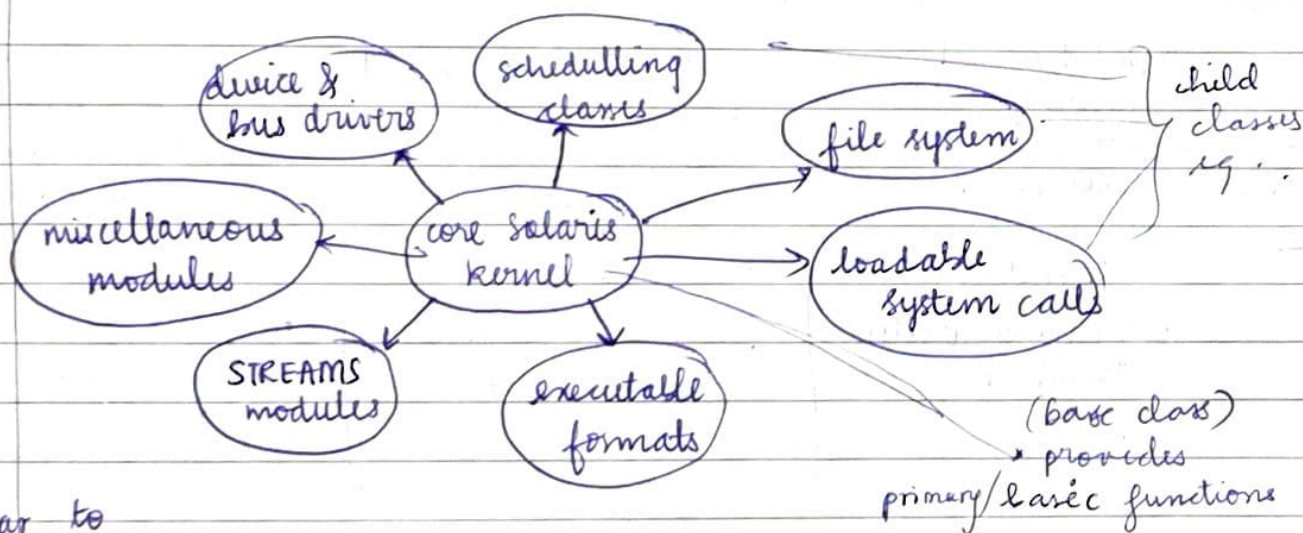 device &
bus drivers
schedulling
classes
file system
child
classes
eg.
miscellaneous
modules
core Solaris
kernel
loadable
system calls
STREAMS
modules
executable
formats
(base class)
provides
primary/basic functions
to